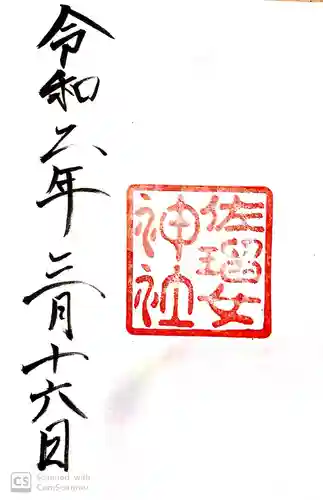 令和六年三月十六日
佐瑠女
神社
CS Scanned with
CamScanner